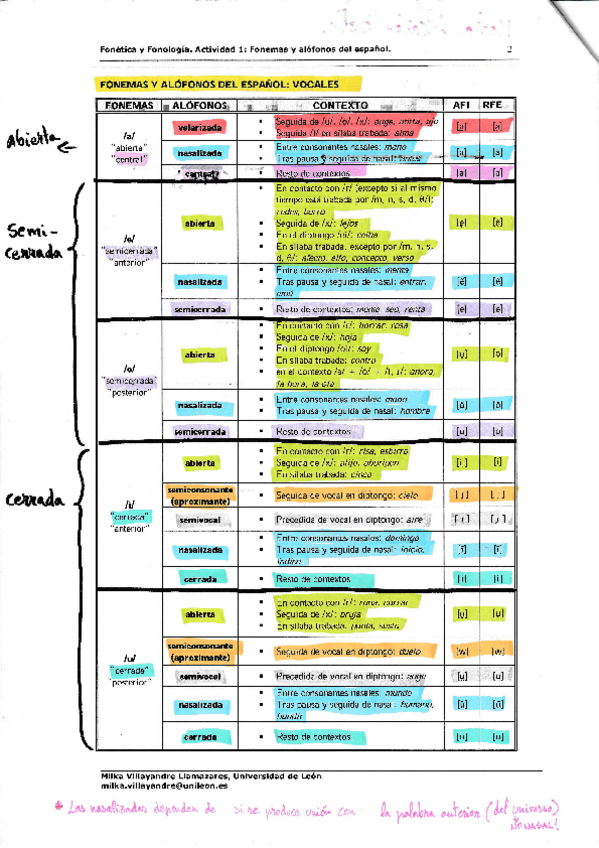 Fonética y Fonología. Actividad 1: Fonemas y alófonos del español. 2
FONEMAS Y ALÓFONOS DEL ESPAÑOL: VOCALES
FONEMAS ALÓFONOS CONTEXTO AFI RFE
Abierta
/a/
"abierta"
"central"
velarizada
Seguida de /u/, /o/, /x/: auge, ahora, ajo
Seguida /l/ en sílaba trabada: alma
nasalizada
Entre consonantes nasales: mano
Tras pausa y seguida de nasal:
central
Resto de contextos
Semi-
cerrada
/e/
"semicerrada"
"anterior"
abierta
En contacto con /r/ (excepto si al mismo
tiempo está trabada por /m, n, s, d, θ/):
Seguida de /x/: lejos
En el diptongo /ei/:
En sílaba trabada, excepto por /m, n, s,
d, θ/: afecto, elfo, concepto, verso
nasalizada
Entre consonantes nasales: mente
Tras pausa y seguida de nasal: entrar,
semicerrada
Resto de contextos: seo, renta
/o/
"semicerrada"
"posterior"
abierta
En contacto con /r/: borrar, rosa
Seguida de /x/: hoja
En el diptongo /oi/: soy
En sílaba trabada: contra
en el contexto /a/ + /o/ + /l, r/: ahora,
la hora, la ola
nasalizada
Entre consonantes nasales: mono
Tras pausa y seguida de nasal: hombre
semicerrada
Resto de contextos
Cerrada
/i/
"cerrada"
"anterior"
abierta
En contacto con /r/: risa,
Seguida de /x/: hijo,
En sílaba trabada: cinco
semiconsonante
(aproximante)
Seguida de vocal en diptongo: cielo
semivocal
Precedida de vocal en diptongo: aire
nasalizada
Entre consonantes nasales: domingo
Tras pausa y seguida de nasal: inicio,
cerrada
Resto de contextos
/u/
"cerrada"
"posterior"
abierta
En contacto con /r/:
Seguida de /x/: bruja
En sílaba trabada: punta, susto
semiconsonante
(aproximante)
Seguida de vocal en diptongo: duelo [w] [w]
semivocal
Precedida de vocal en diptongo: auge
nasalizada
Entre consonantes nasales: mundo
Tras pausa y seguida de nasal: humano,
cerrada
Resto de contextos
Milka Villayandre Llamazares, Universidad de León
milka.villayandre@unileon.es
* Las nasalizadas dependen de si se produce unión con la palabra anterior (del universo)
NO NASAL!